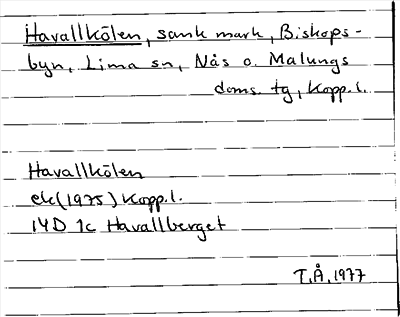 Havallkölen, sank mark, Biskops-
byn, Lima sn, Nås o. Malungs
doms. tg, Kopp.l.
Havallkölen
ek(1975) Kopp.l.
14D 1c Havallberget
T.Å. 1977